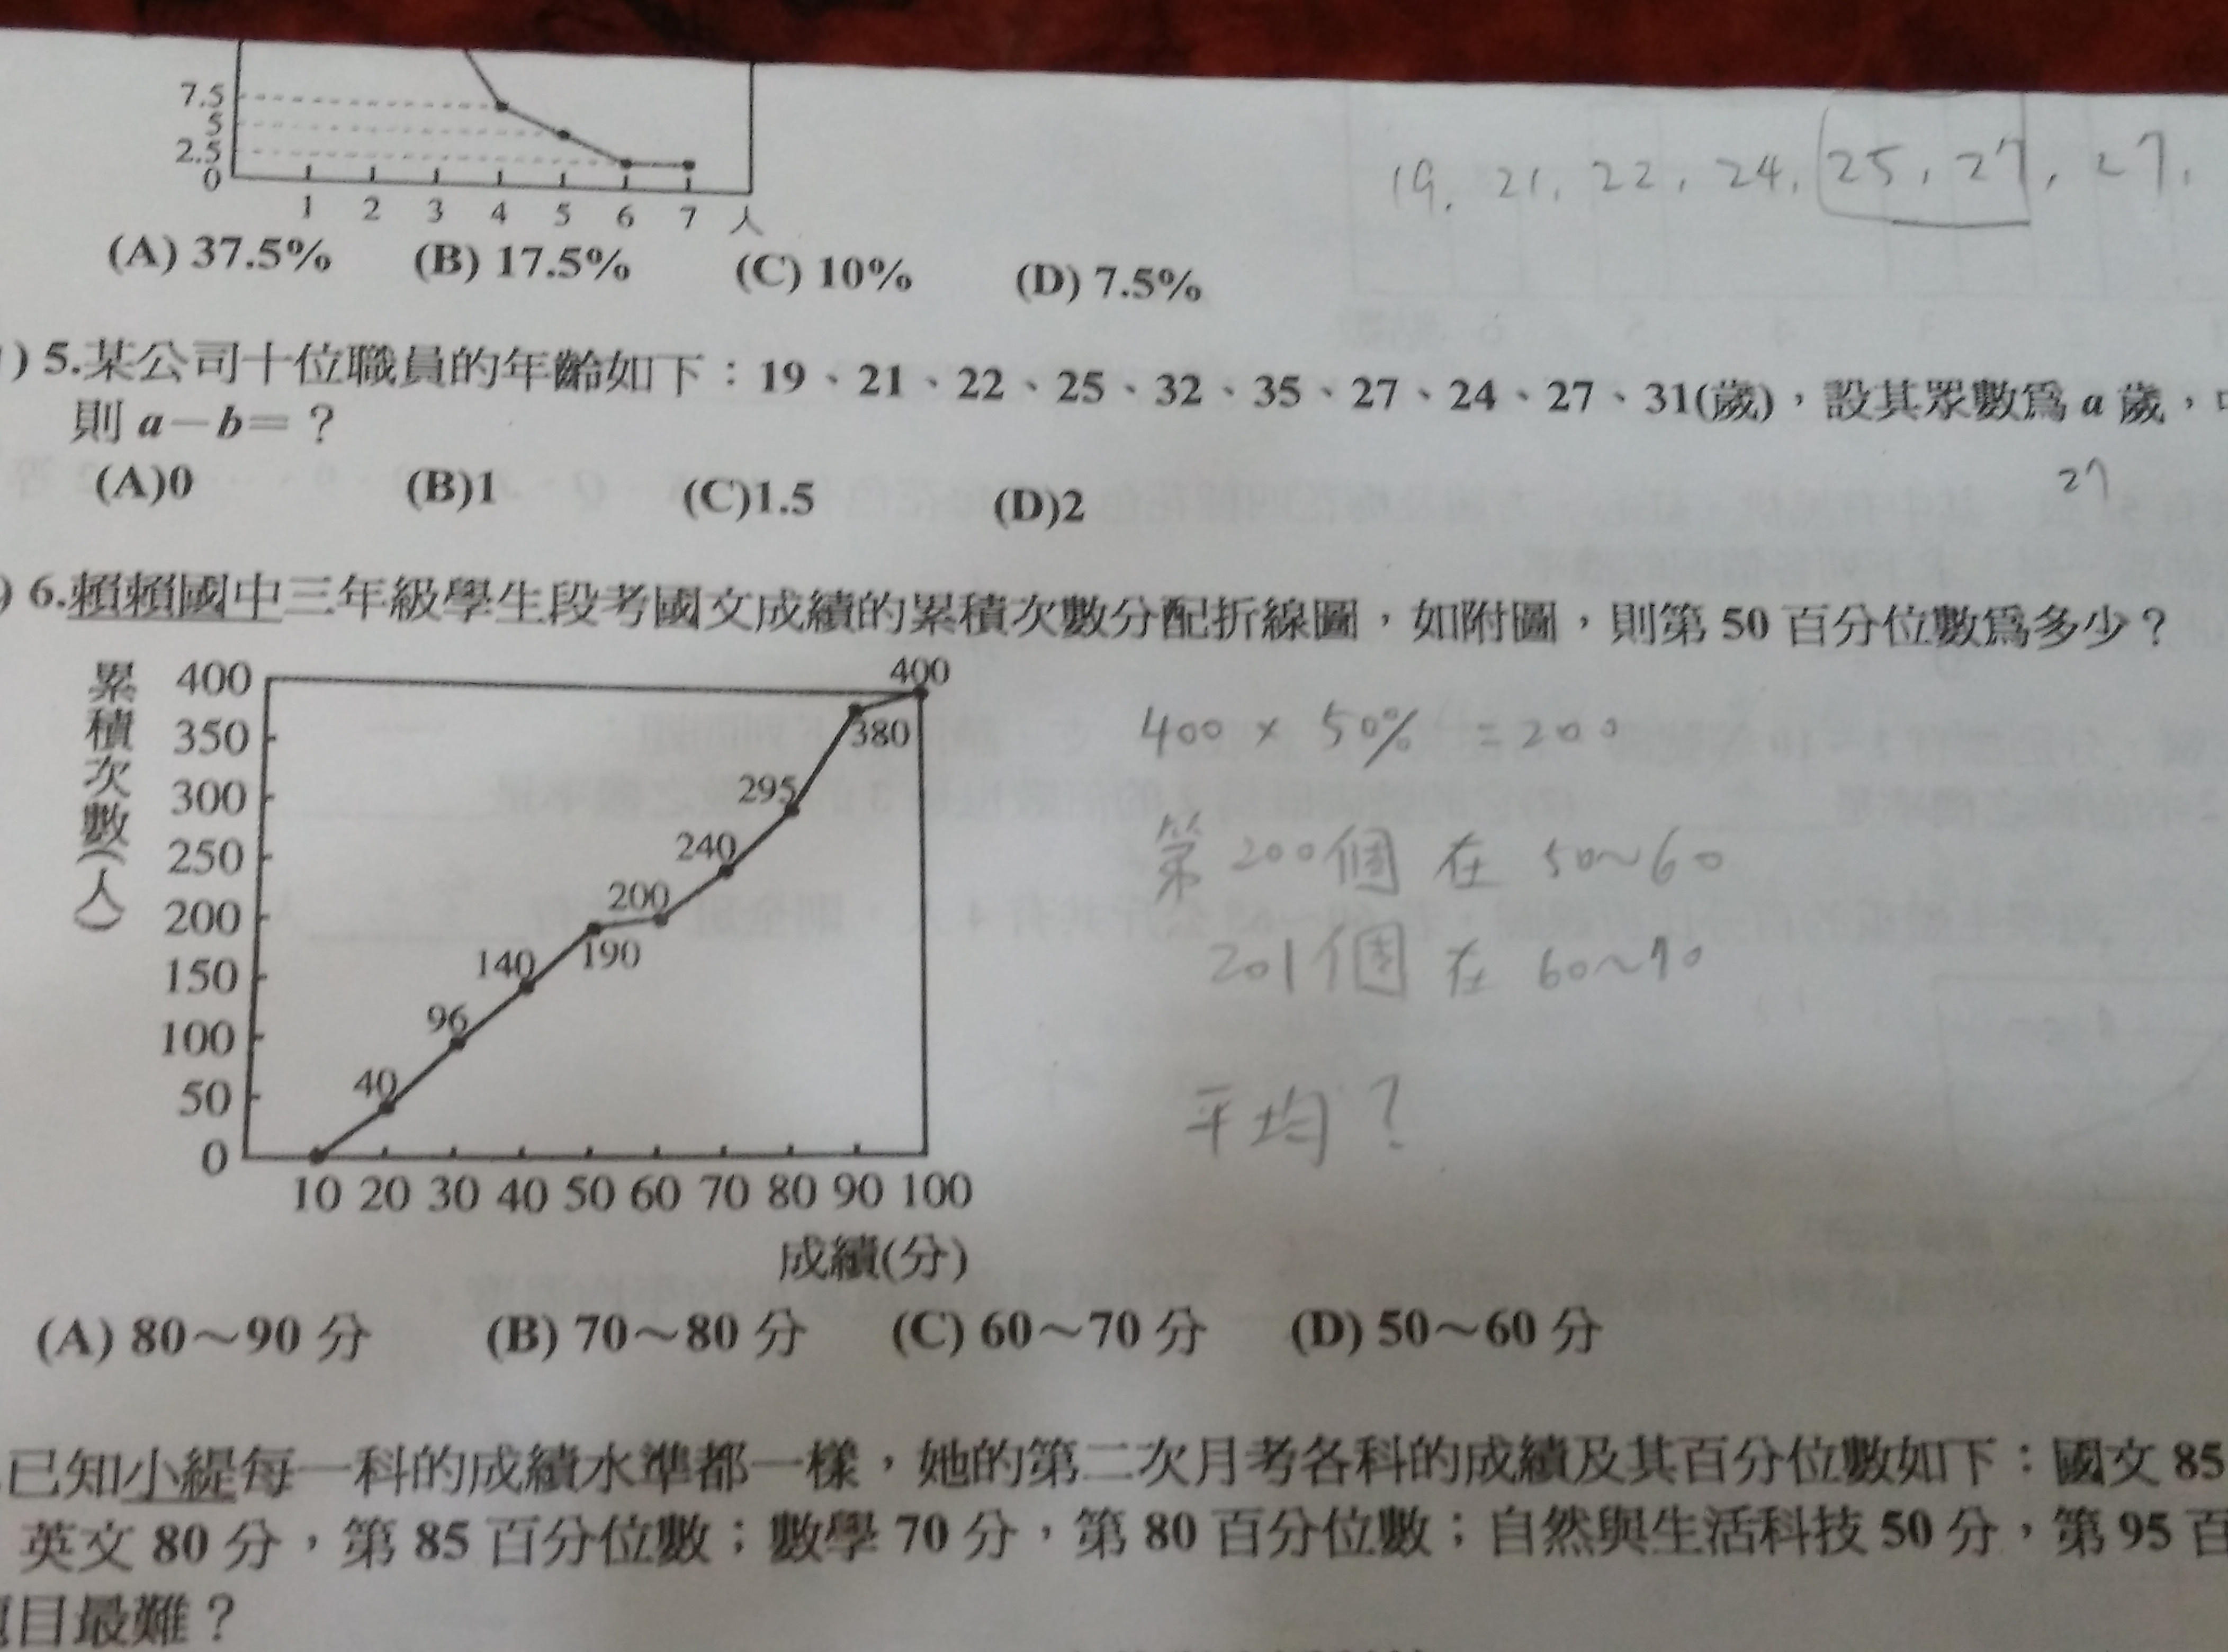 7.5
5
2.5
0
1 2 3 4 5 6 7 人
(A) 37.5% (B) 17.5% (C) 10% (D) 7.5%
19, 21, 22, 24, 25, 27, 27,
) 5.某公司十位職員的年齡如下：19、21、22、25、32、35、27、24、27、31(歲)，設其眾數爲 a 歲，
則 a－b＝？
27
(A)0 (B)1 (C)1.5 (D)2
) 6.賴賴國中三年級學生段考國文成績的累積次數分配折線圖，如附圖，則第 50 百分位數爲多少？
累積次數(人)
400
350
300
250
200
150
100
50
0
400
380
295
240
200
190
140
96
40
10 20 30 40 50 60 70 80 90 100
成績(分)
400 × 50% = 200
第 200個 在 50~60
201個 在 60~70
平均？
(A) 80～90 分 (B) 70～80 分 (C) 60～70 分 (D) 50～60 分
已知小緹每一科的成績水準都一樣，她的第二次月考各科的成績及其百分位數如下：國文 85
英文 80 分，第 85 百分位數；數學 70 分，第 80 百分位數；自然與生活科技 50 分，第 95 百
目最難？